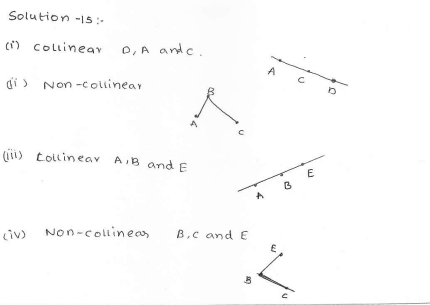 Solution -15:-
(i) Collinear D, A and C.
A C D
(ii) Non-collinear
B
A C
(iii) Collinear A, B and E
A B E
(iv) Non-collinear B, C and E
E
B
C